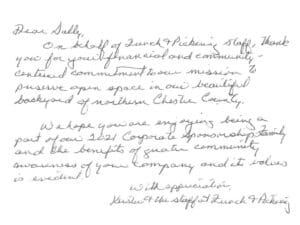 Dear Sally,
On behalf of French & Pickering Staff, thank
you for your financial and community-
centered commitment to our mission to
preserve open space in our beautiful
backyard of northern Chester County.
We hope you are enjoying being a
part of our 2021 Corporate Sponsorship
and the benefits of greater community
awareness of your company and its values
is evident.
With appreciation,
& the staff at French & Pickering